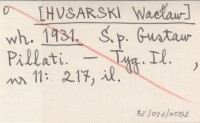 [HUSARSKI Wacław]
wh. 1931. Ś.p. Gustaw
Pillati. — Tyg. Il.,
nr 11: 217, il.